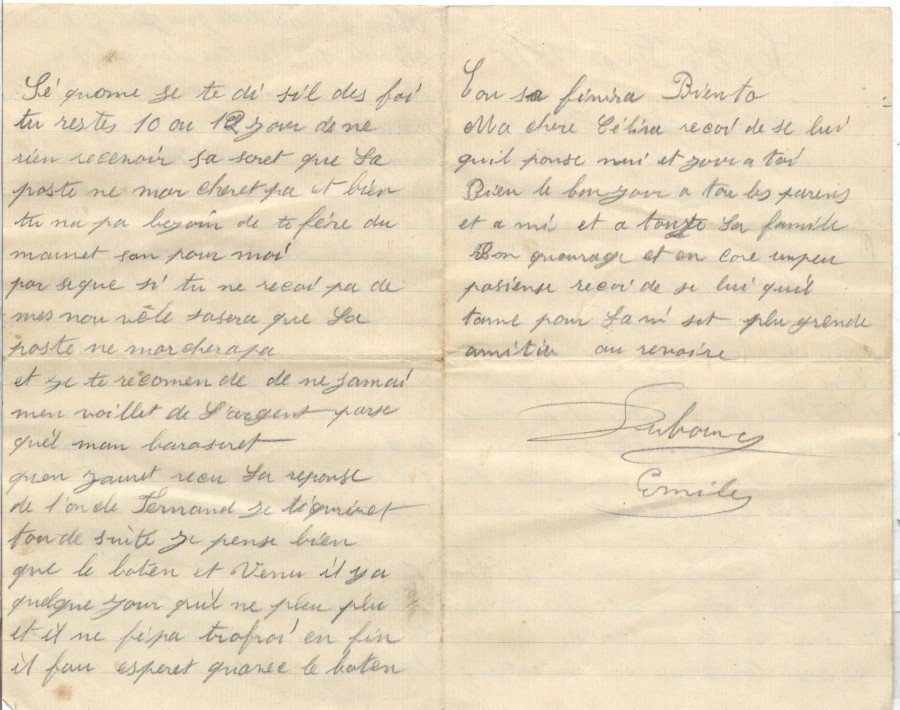 Sé quome se te di s'il des foi
tu restes 10 ou 12 jour de ne
rien recevoir sa soret que La
poste ne marcheret pa et bien
tu na pa bejoin de te fére du
mauvet san pour moi
par se que si tu ne recoi pa de
mes nou vèle sasera que La
poste ne marchera pa
et je te recomen de de ne jamai
men voillet de L'argent parse
qu'el man baraseret
quon jauret recu La reponse
de l'oncle Fernand je t'écriret
tou de suite je pense bien
que le boten et Venu il y a
quelque jour qu'il ne pleu plu
et il ne fé pa trofroi en fin
il fau esperet quavec le boten
Tou sa finira Biento
Ma chere Célina recoi de se lui
qu'il ponse nui et jour a toi
Bien le bonjour a tou les parens
et a mi et a toute La famile
Bon quourage et en core unpeu
pasiense recoi de se lui qu'il
tame pour La vi set plu grende
amitiu au revoire
Dubourg
Emile